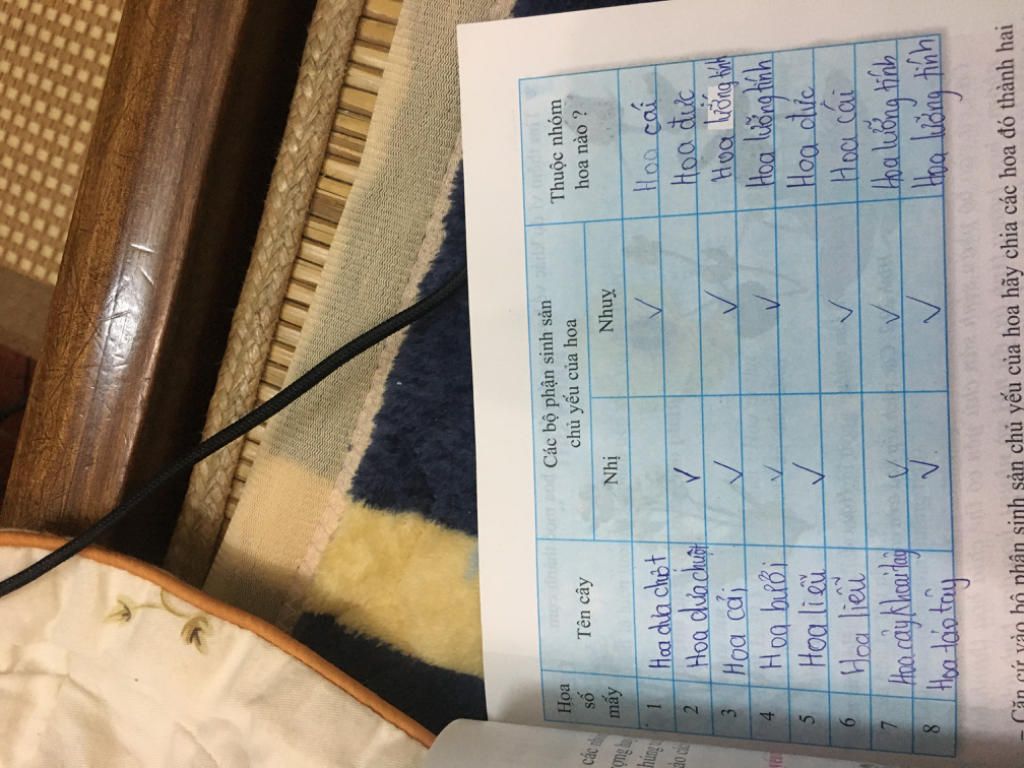 Hoa số mấy | Tên cây | Các bộ phận sinh sản chủ yếu của hoa | Thuộc nhóm hoa nào ?
Nhị | Nhuỵ
1 | Hoa dưa chôt | | ✓ | Hoa cái
2 | Hoa dưa chuột | ✓ | | Hoa đực
3 | Hoa cải | ✓ | ✓ | Hoa lưỡng tính
4 | Hoa bưởi | ✓ | ✓ | Hoa lưỡng tính
5 | Hoa liễu | ✓ | | Hoa đực
6 | Hoa liễu | | ✓ | Hoa cái
7 | Hoa cây khoai tây | ✓ | ✓ | Hoa lưỡng tính
8 | Hoa táo tây | ✓ | ✓ | Hoa lưỡng tính
– Căn cứ vào bộ phận sinh sản chủ yếu của hoa hãy chia các hoa đó thành hai